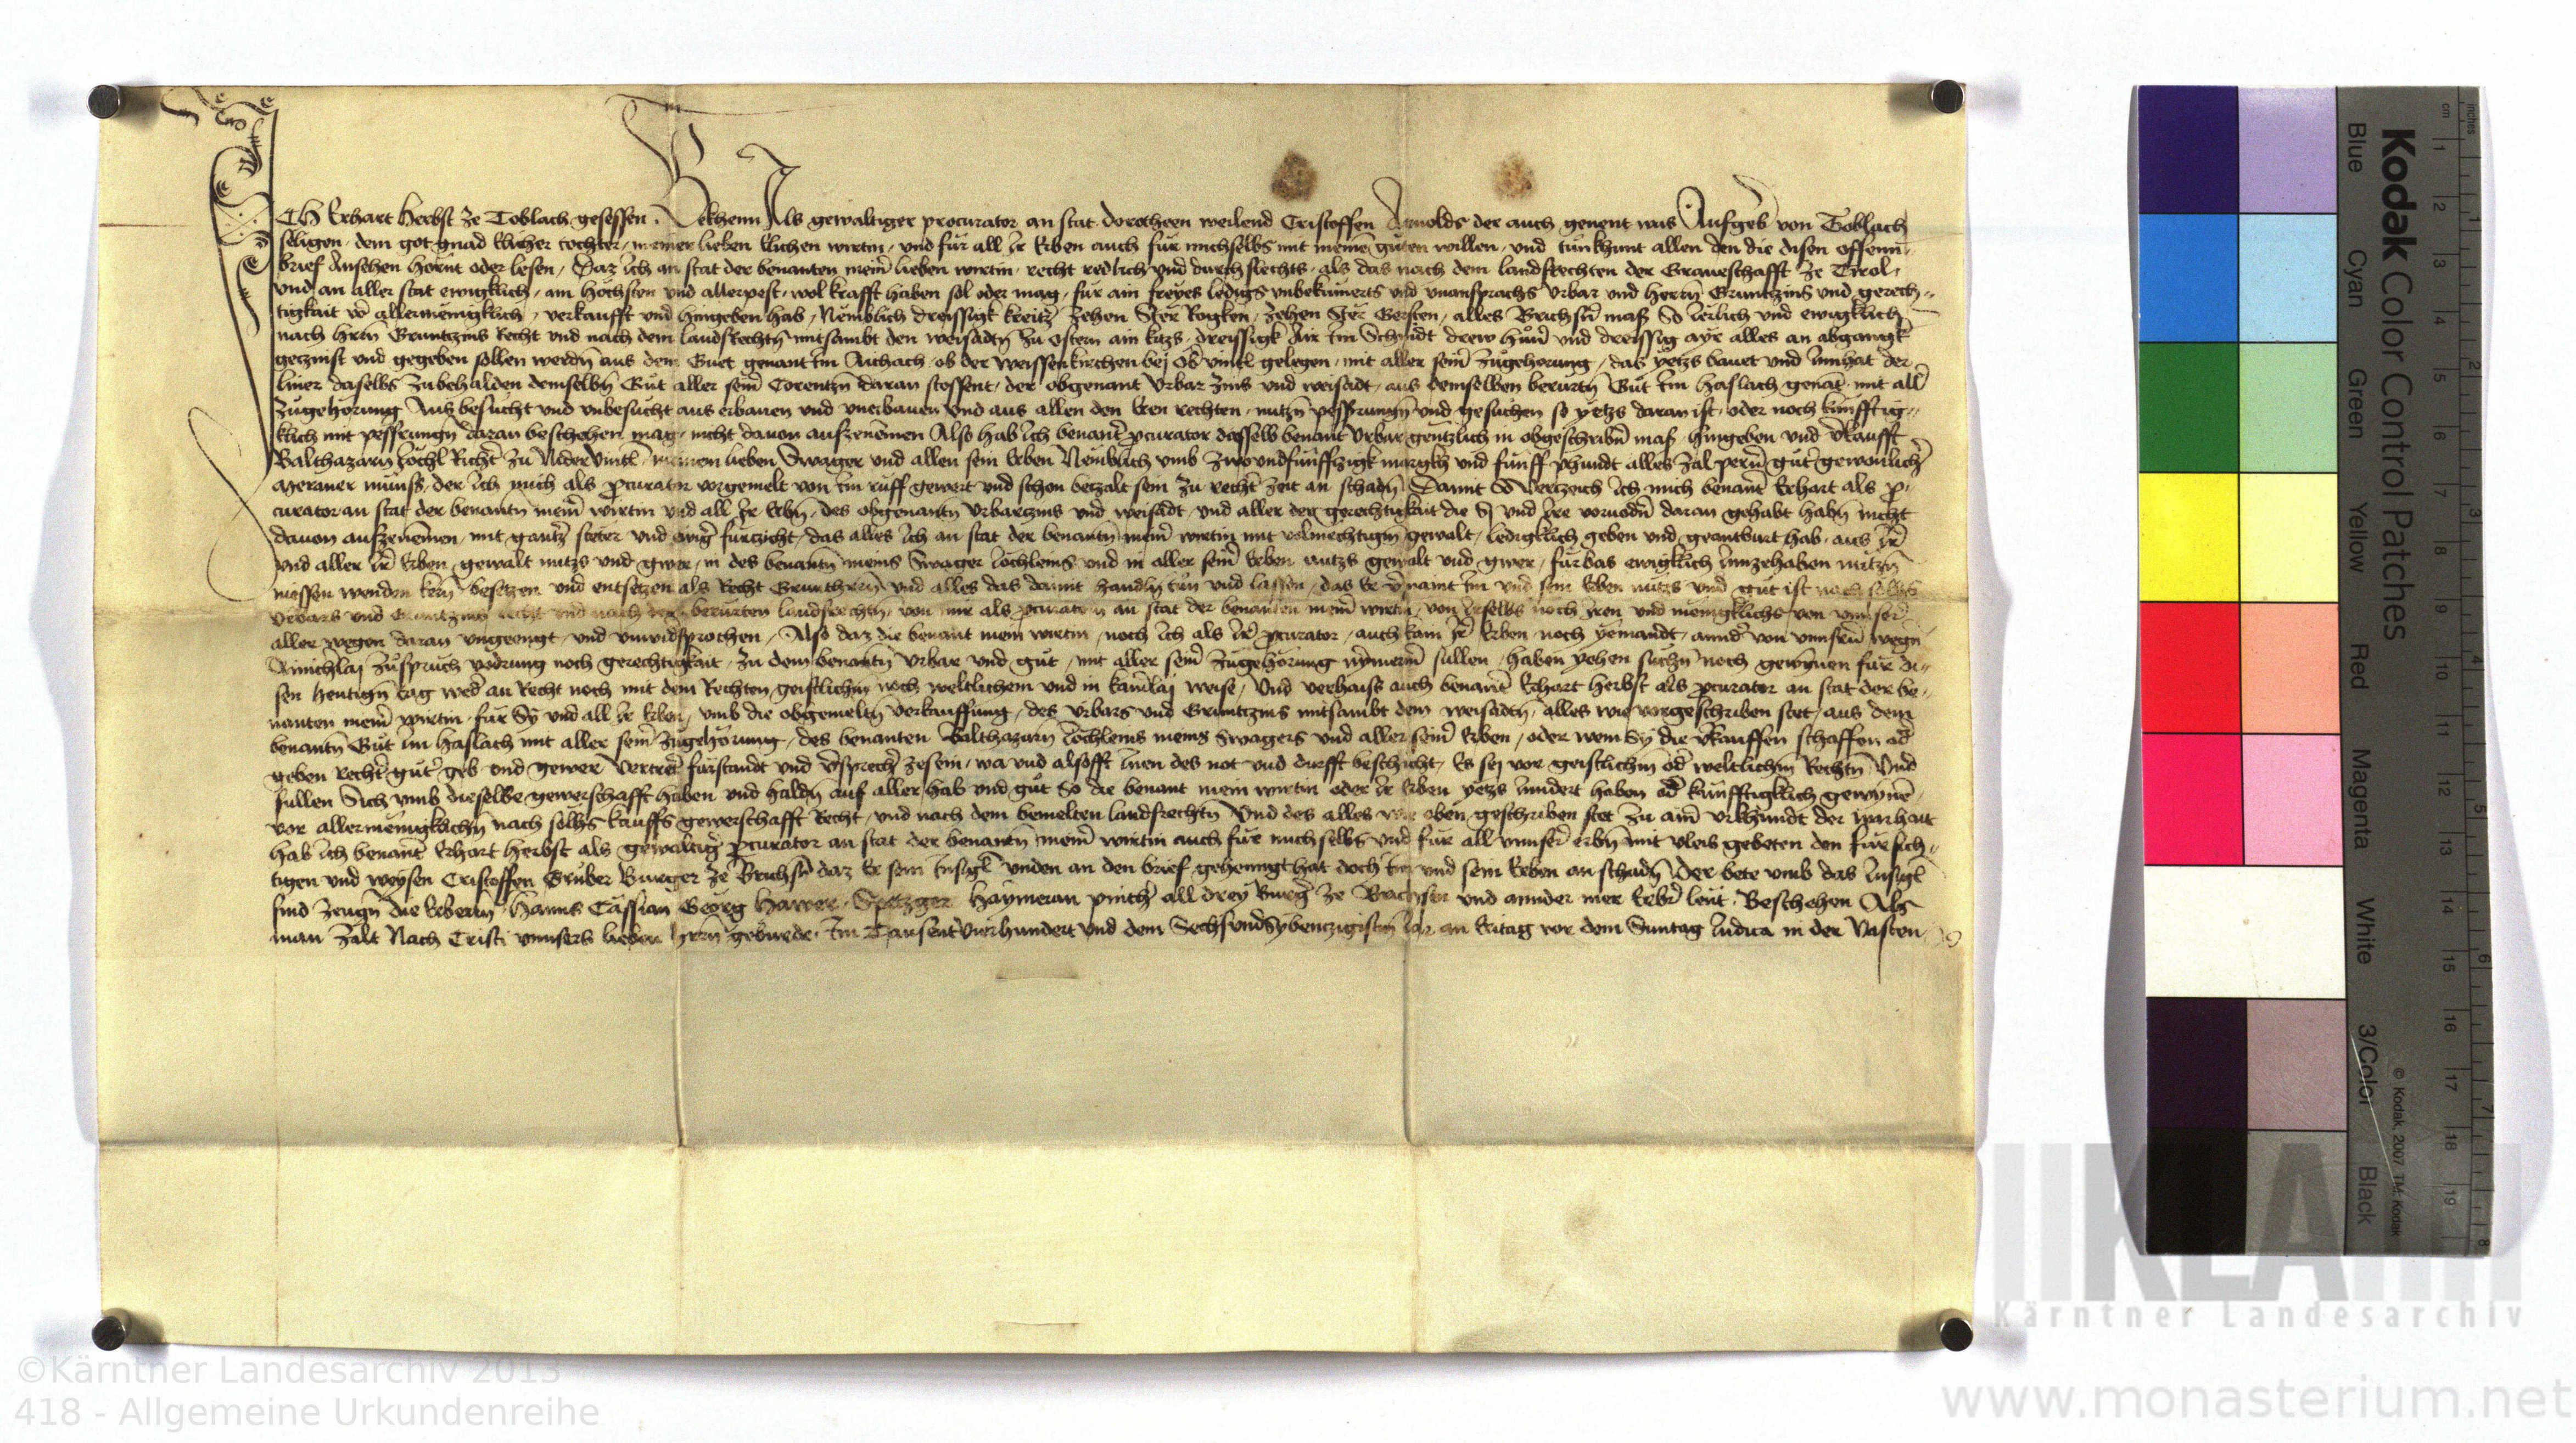 ICH Erhart Herbst ze Toblach gesessen. Bekhenn Als gewaltiger procurator an stat dorotheen weilend Cristoffen Arnolds der auch genent was Aufgeb von Toblach
seligen dem got gnad elicher tochter meiner lieben elichen wirtin und für all ir Erben auch für mich selbs mit meinē guten willen und tün khunt allen den die disen offenn
brief Ansehen hörnt oder lesen Daz ich an stat der benanten mein̄ lieben wirtin recht redlich und durch slechts als das nach dem landsrechten der Graueschafft ze Tirol
und an aller stat ewigklich am höchsten und allerpest wol krafft haben sol oder mag für ain freyes ledigs unbekümerts und unansprachs Urbar und herrn Gruntzins und gerech
tigkait vor allermenigklich verkaufft und hingeben hab Nemblich dreissigk kreitz zehen Ster Rogken zehen Ster Gersten alles Brichsn̄ mass So ierlich und ewigklich
nach hern Gruntzins Recht und nach dem landsrechtn̄ mitsambt den weisadtn̄ zu ostern ain kitzs dreissigk Air im Schnidt drew hün̄ und dreissig ayr alles an abgangk
getzinst und gegeben sollen werdn̄ aus dem Guet genant im Aichach ob der Weissenkirchen bej Ob vintl gelegen mit aller sein̄ zugehorung das yetzs bauet und innhat der
liner daselbs zubehalden demselbn̄ Güt aller sein̄ Corentzn̄ daran stossent der obgenant Urbar zins und weisadt aus demselben berürtn̄ Güt im haslach genāt mit all
zugehörung Aus besucht und unbesucht aus erbauen und unerbauen und aus allen den eren rechten nutzn̄ pessrungn̄ und gesuchen so yetzs daran ist oder noch künfftig
klich mit pessrungn̄ daran beschehen mag nicht dauon aufzenemen Also hab ich benant pcurator dasselb benant Urbar gentzlich in obgeschribn̄ mass hingeben und verkaufft
Balthazarn löchl Richt̄ zu Nider Vintl meinen lieben Swager und allen sein Erben Nemblich umb zwoundfünffzigk margkh und fünff phundt alles zal pern̄ güt gewonlich
meraner münss der ich mich als pcurator vorgemelt von im rüff gewert und schon betzalt sein zu recht zeit an schadn̄ Damit So vertzeich ich mich benant Erhart als p
curator an stat der benantn̄ mein̄ wirtin und all ir Erbn̄ des obgenantn̄ Urbartzins und weisadt und aller der gerechtigkait die Sj und ire voruodn̄ daran gehabt habn̄ nicht
dauon aufzenemen mit gantz̄ stäter und ewiḡ fürtzicht das alles ich an stat der benantn̄ mein̄ wirtin mit volmechtigem gewalt ledigklich geben und geantburt hab aus ir̄
und aller ir̄ Erben gewalt nutzs und gwer in des benantn̄ meins Swager löchleins und in aller sein̄ Erben nutzs gewalt und gwer fürbas ewigklich innzehaben nützn̄
niessen wenden kern̄ besetzen und entsetzen als Recht Grunthern̄ und alles das damit handln̄ tün und lassen das Er v̄maint im und sein Erben nutzs und güt ist nach solhs
Urbars und Gruntzins recht und nach dem berürten landsrechtn̄ von mir als pcurator an stat der benanten mein̄ wirtin von irselbs noch iren und menigklichs von unnser
aller wegen daran ungeengt und unwidsprochen Also daz die benant mein wirtin noch ich als ir̄ pcurator auch kain ir̄ Erben noch yemandt annd̄ von unnsern̄ wegn̄
Ainichlaj züspruch vodrung noch gerechtigkait zu dem benantn̄ Urbar und güt mit aller sein̄ zugehörung nymmerm̄ sullen haben yehen suchn̄ noch gewynnen für di
sen heutign̄ tag wed̄ an Recht noch mit dem Rechten geistlichm̄ noch weltlichem und in kainlaj weise Und verhaiss auch benant̄ Erhart Herbst als pcurator an stat der be
nanten mein̄ wirtin für Sy und all ir Erben umb die obgemeltn̄ verkauffung des Urbars und Gruntzins mitsambt dem weisadtn̄ alles wie vorgeschriben stet aus dem
benantn̄ Güt im haslach mit aller sein̄ zügehörung des benanten Balthazarn löchleins meins Swagers und aller sein̄ Erben oder wem Sy die v̄kauffen schaffen od̄
geben recht̄ güt̄ geb und gewer vertret̄ fürstandt und v̄sprech̄ zesein wa und alsofft inen des not und durfft beschicht Es sej vor geistlichm̄ od̄ weltlichm̄ Rechtn̄ Und
sullen Sich umb dieselbe gewerschafft haben und haldn̄ auf aller hab und güt So die benant mein wirtin oder ir Erben yetzs inndert haben od̄ künfftigklich gewynē
vor allermenigklichn̄ nach solhs kauffs gewerschafft Recht und nach dem bemelten landsrechtn̄ Und des alles wie oben geschriben stet zu aim̄ urkhundt der warhait
hab ich benant̄ Erhart Herbst als gewaltiḡ pcurator an stat der benantn̄ mein̄ wirtin auch für mich selbs und für all unnser̄ erbn̄ mit vleis gebeten den fürsich
tigen und weysen Cristoffen Grüber Burger ze Brichsn̄ daz Er sein Insigl unden an den brief gehenngt hat doch im und sein Erben an schadn̄ Der bete umb das Insigl
sind zeugn̄ die Erbern̄ Hanns Cassian Georg Hawer Haymeran pinth̄ all drey Burḡ ze Brichsen und annder mer Erber leut Beschehen Als
man zalt Nach Cristi unnsers lieben hern̄ geburde Im Tausent Vierhundert und dem Sechsundsybenczigistn̄ Jar an Eritag vor dem Suntag Judica in der Vasten
Kodak Color Control Patches
Blue Cyan Green Yellow Red Magenta White 3/Color Black
© Kodak, 2007 TM: Kodak
KLA
Kärntner Landesarchiv
©Kärntner Landesarchiv 2013
418 - Allgemeine Urkundenreihe
www.monasterium.net